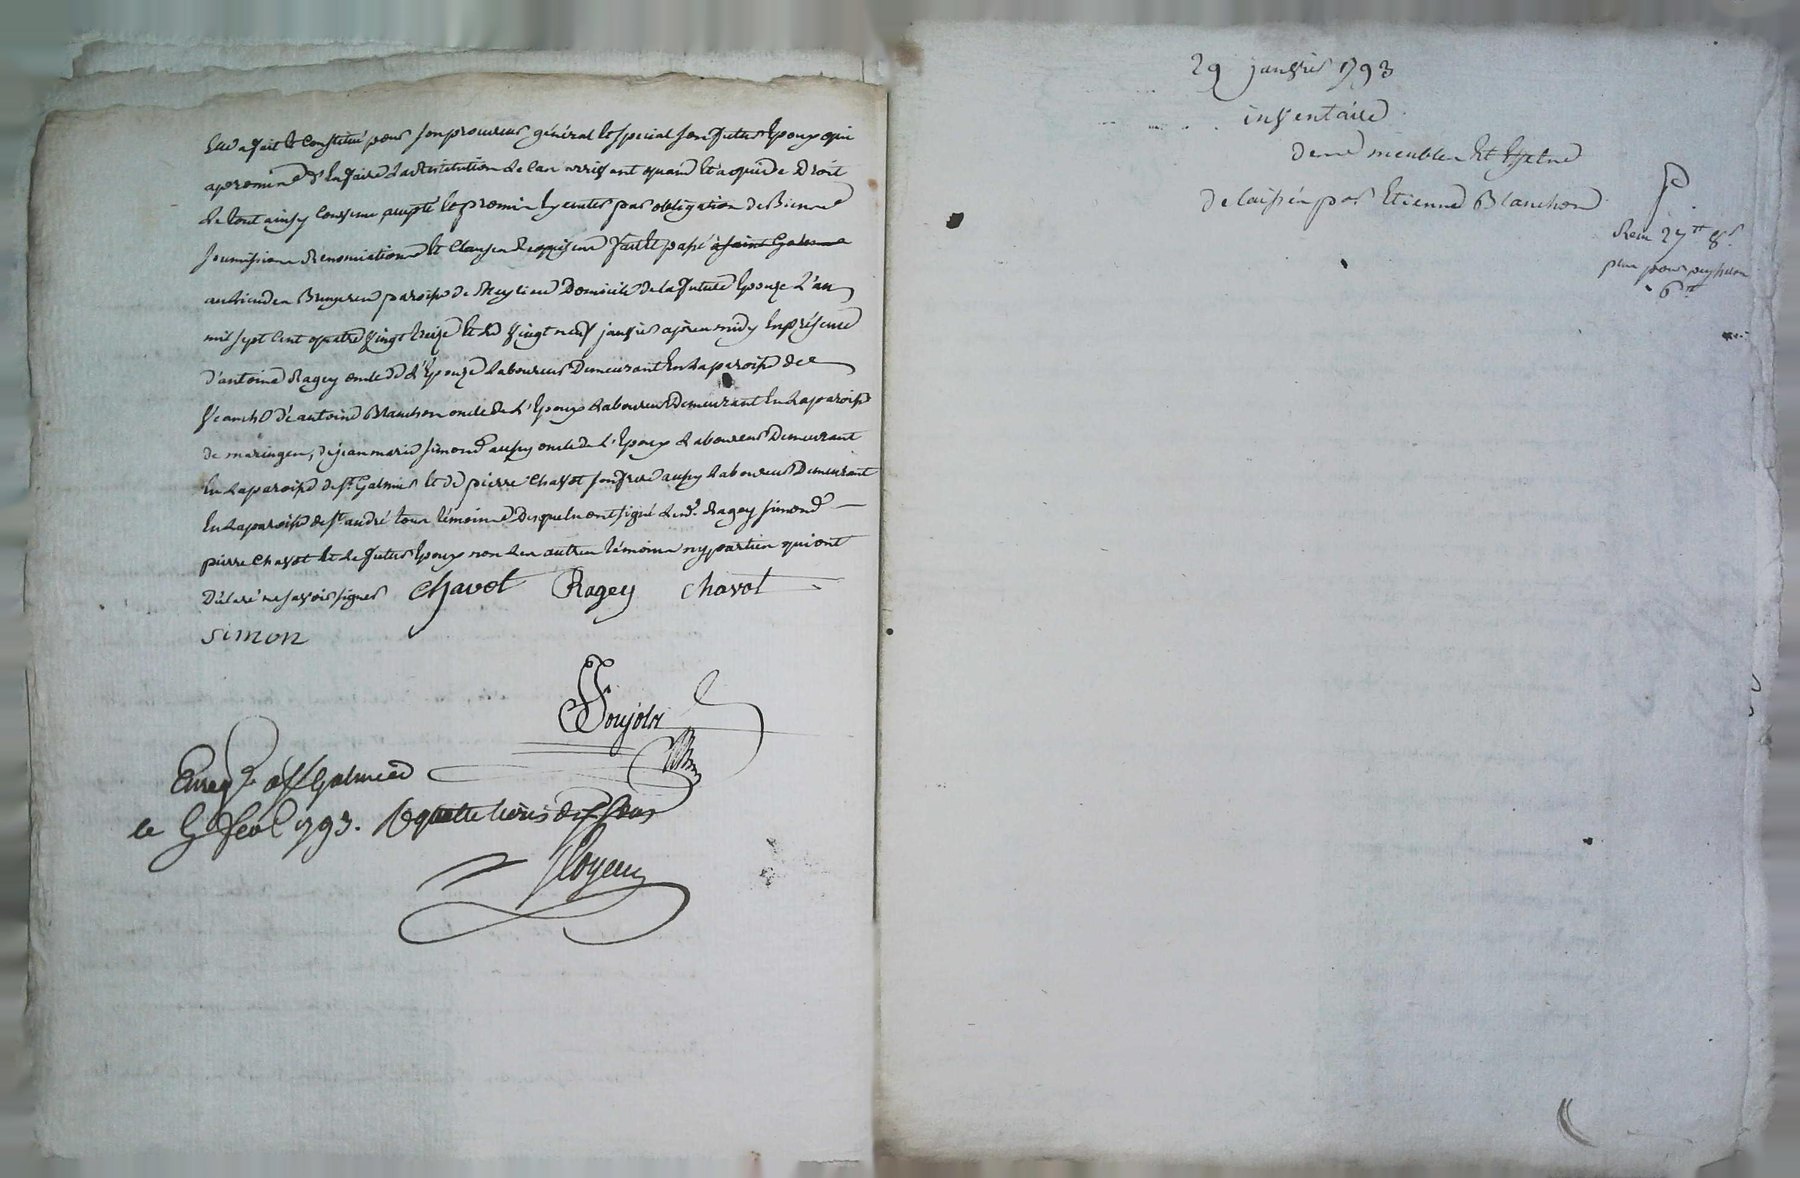 Elle a fait et constitué pour son procureur général et special son futur Epoux qui
a promis d'En faire la restitution le cas arrivant quand et a qui de Droit
le tout ainsy convenu accepté et promis Executer par obligation de Biens
soumissions Renonciations et Clauses Requises fait et passé a saint Galmier
au lieu des Bruyeres paroisse de Meylieu Domicile de la future Epouze L'an
mil sept cent quatre vingt treize et le vingt neuf janvier après midy En présence
d'antoine Ragey oncle de l'Epouze Laboureur Demeurant En La paroisse de
Veauche d'antoine Blanchon oncle de L'Epoux Laboureur Demeurant En La paroisse
de maringes, de jean marie simond aussy oncle de L'Epoux Laboureur Demeurant
En La paroisse de st Galmier et de pierre Chavot son frere aussy Laboureur Demeurant
En La paroisse de st andré tous témoins Desquels ont signé Lesd. Ragey simond
pierre Chavot et le futur Epoux non Les autres témoins ny parties qui ont
Déclaré ne savoir signer Chavot Ragey Chavot
Simon
Soujols
Enreg.é a st Galmier
le fev. 1793. R quatre livres dix sous
29 janvier 1793
inventaire
de meubles Et Effets
delaissés par Etienne Blanchon
Reçu 27tt 8s
plus pour
6tt